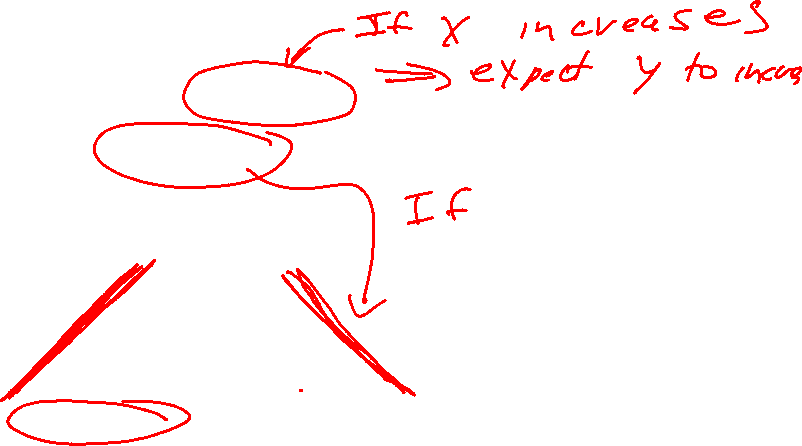 If x increases
⇒ expect y to incre
If